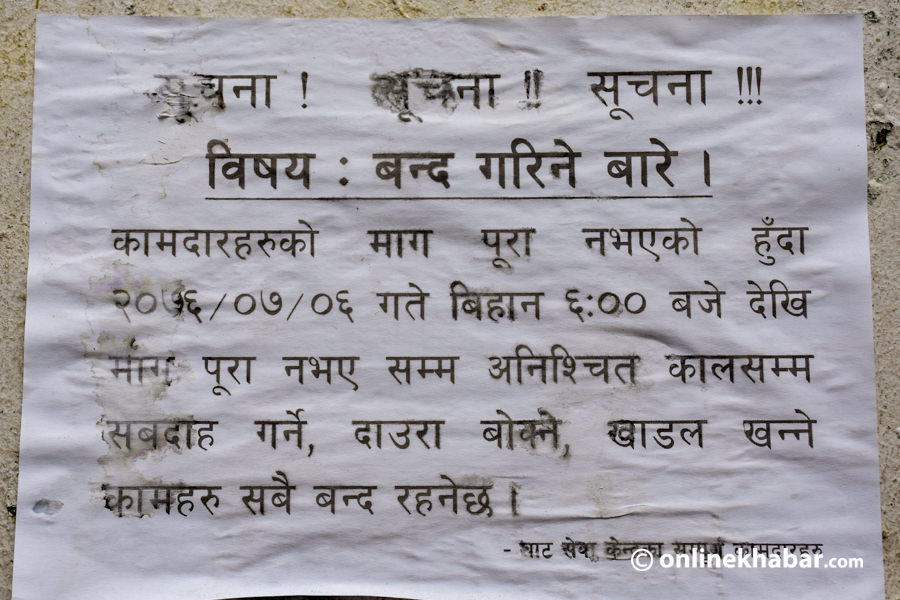 सूचना ! सूचना !! सूचना !!!
विषय : बन्द गरिने बारे ।
कामदारहरुको माग पूरा नभएको हुँदा
२०७६/०७/०६ गते बिहान ६:०० बजे देखि
माग पूरा नभए सम्म अनिश्चित कालसम्म
सबदाह गर्ने, दाउरा बोक्ने, खाडल खन्ने
कामहरु सबै बन्द रहनेछ ।
- घाट सेवा केन्द्रका सम्पूर्ण कामदारहरु
© onlinekhabar.com